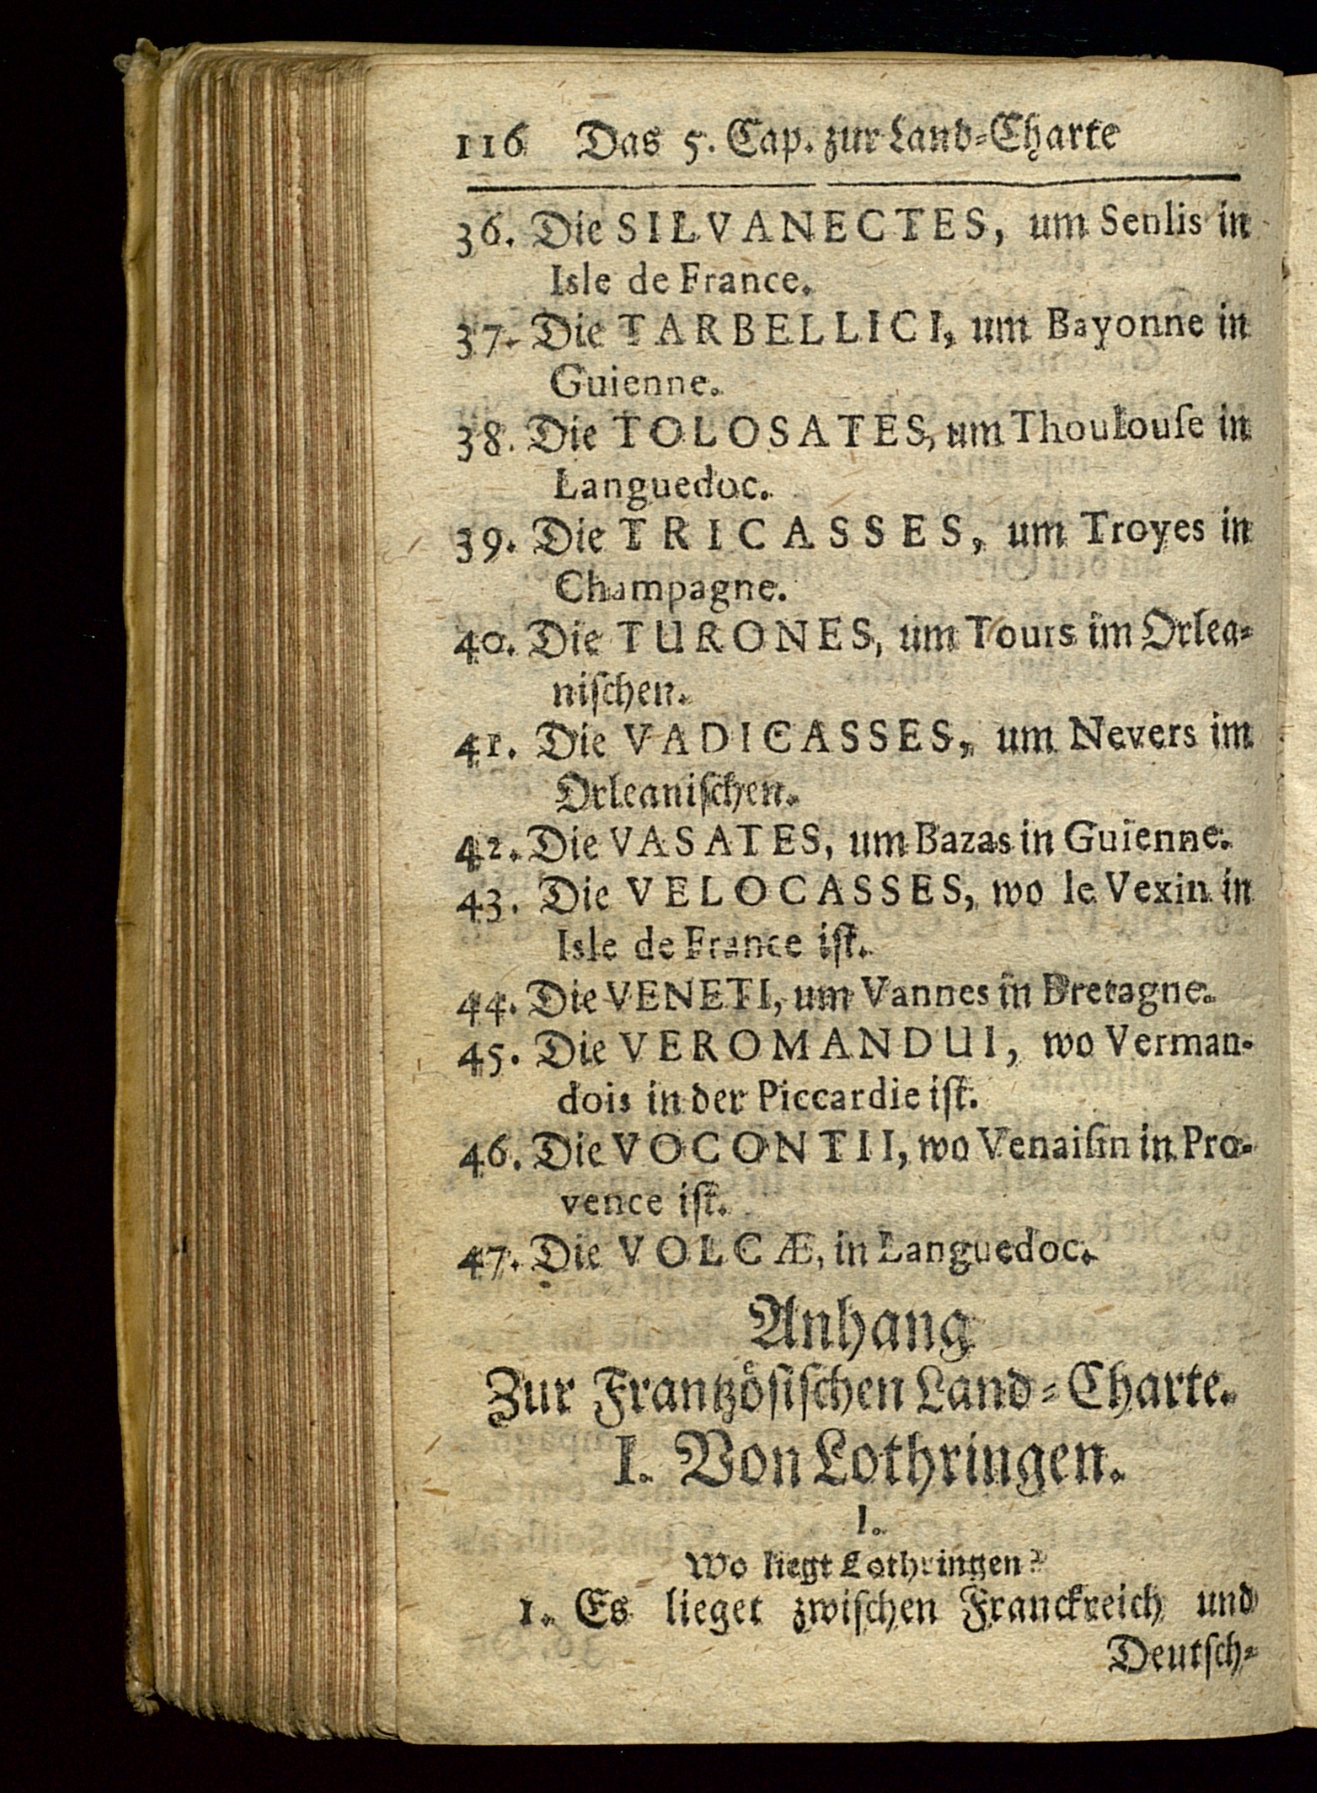 116 Das 5. Cap. zur Land=Charte
36. Die SILVANECTES, um Senlis in
Isle de France.
37. Die TARBELLICI, um Bayonne in
Guienne.
38. Die TOLOSATES, um Thoulouſe in
Languedoc.
39. Die TRICASSES, um Troyes in
Champagne.
40. Die TURONES, um Tours im Orlea=
niſchen.
41. Die VADICASSES, um Nevers im
Orleaniſchen.
42. Die VASATES, um Bazas in Guienne.
43. Die VELOCASSES, wo le Vexin in
Isle de France iſt.
44. Die VENETI, um Vannes in Bretagne.
45. Die VEROMANDUI, wo Verman-
dois in der Piccardie iſt.
46. Die VOCONTII, wo Venaiſin in Pro-
vence iſt.
47. Die VOLCÆ, in Languedoc.
Anhang
Zur Frantzöſiſchen Land=Charte.
I. Von Lothringen.
I.
Wo liegt Lothringen?
1. Es lieget zwiſchen Franckreich und
Deutſch=